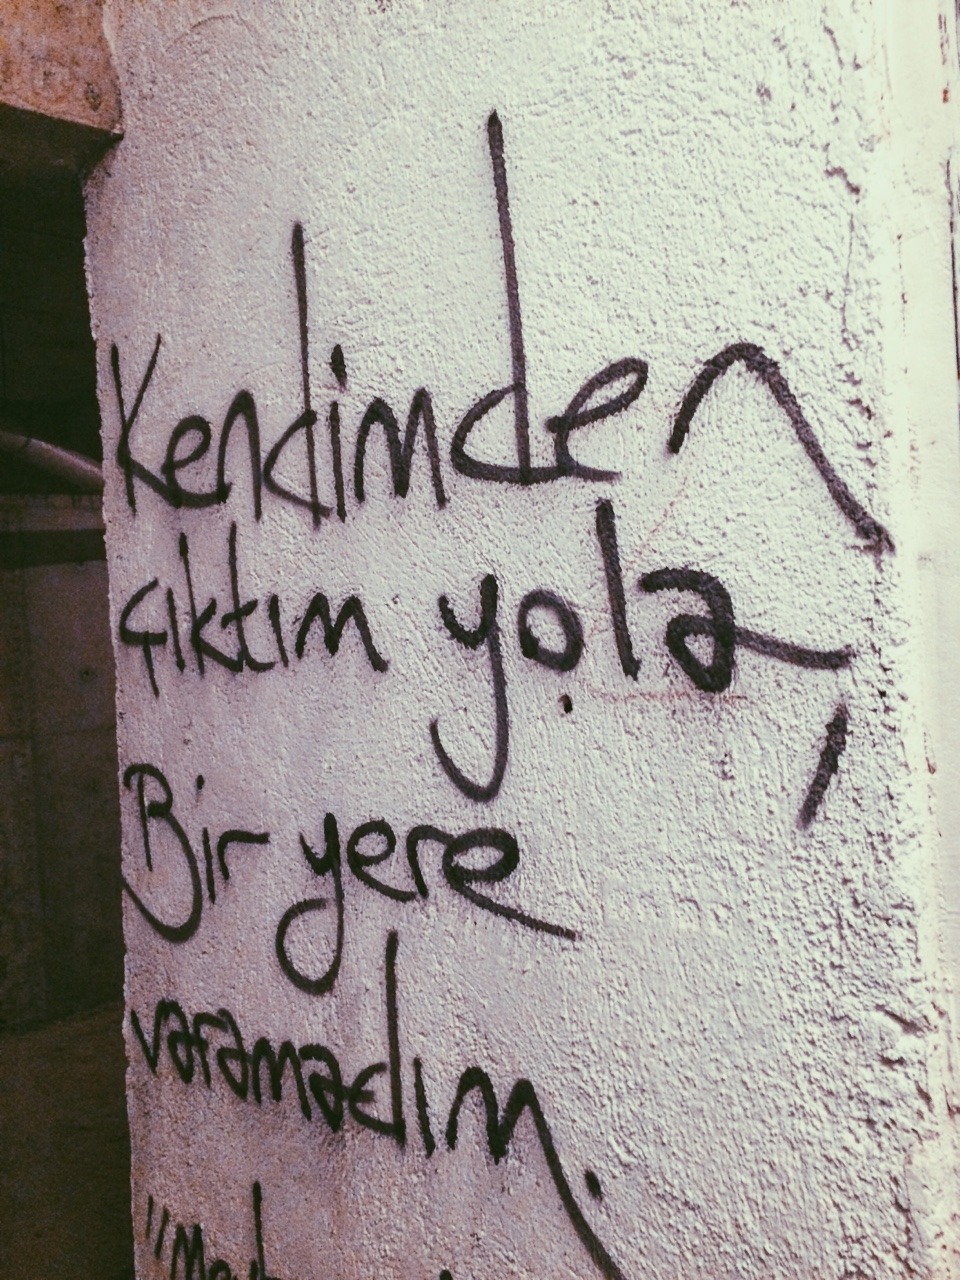 Kendimden
çıktım yola,
Bir yere
varamadım.